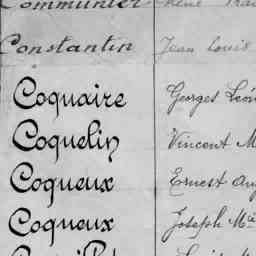 Communier René
Constantin Jean Louis
Coquaire Georges Léon
Coquelin Vincent M
Coqueux Ernest Aug
Coqueux Joseph Mie